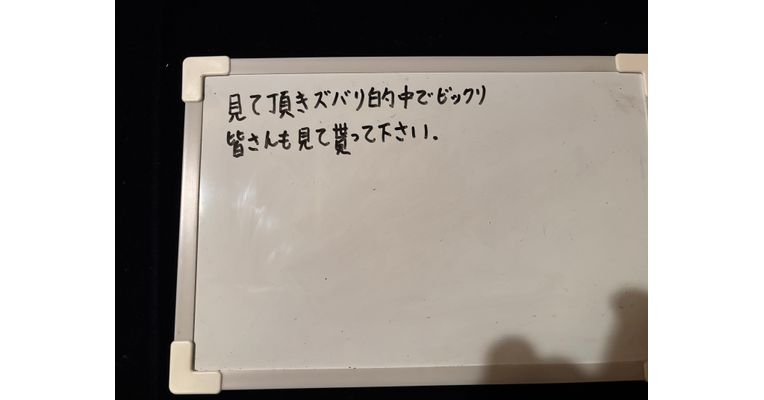 見て頂きズバリ的中でビックリ
皆さんも見て貰って下さい.